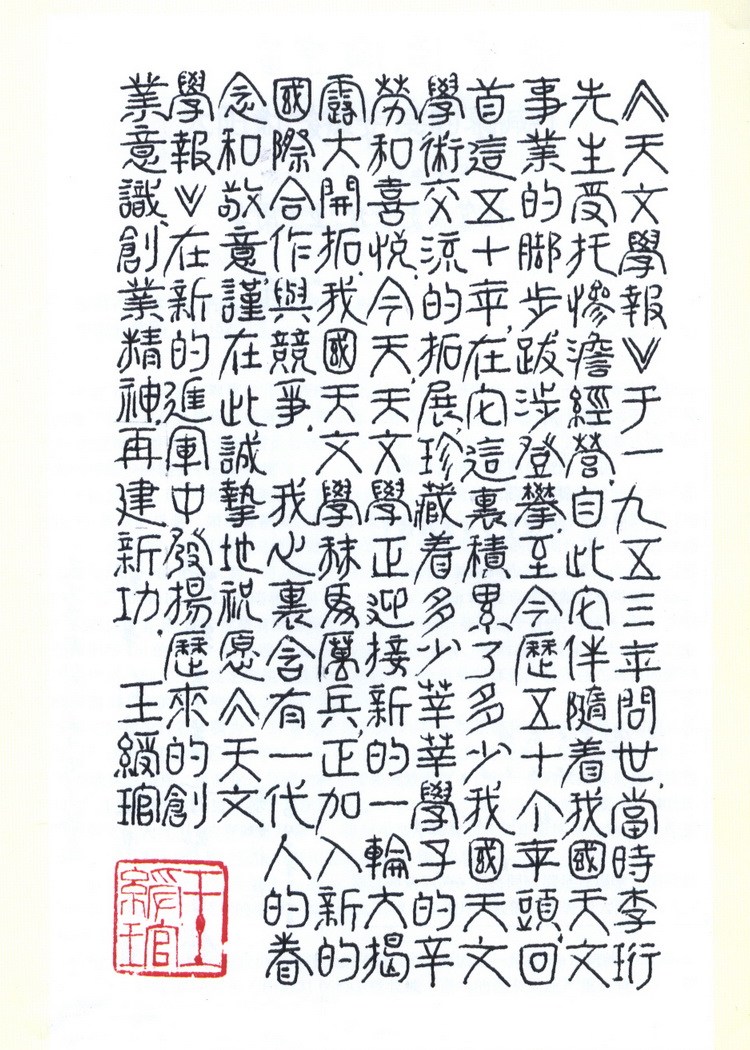 《天文學報》于一九五三年問世,當時李珩
先生受托慘澹經營.自此它伴隨着我國天文
事業的脚步跋涉登攀.至今歷五十个年頭.回
首這五十年,在它這裏積累了多少我國天文
學術交流的拓展,珍藏着多少莘莘學子的辛
勞和喜悦.今天,天文學正迎接新的一輪大揭
露大開拓.我國天文學秣馬厲兵,正加入新的
國際合作與競爭. 我心裏含有一代人的眷
念和敬意.謹在此誠摯地祝愿《天文
學報》在新的進軍中發揚歷來的創
業意識,創業精神,再建新功. 王綬琯
王綬琯